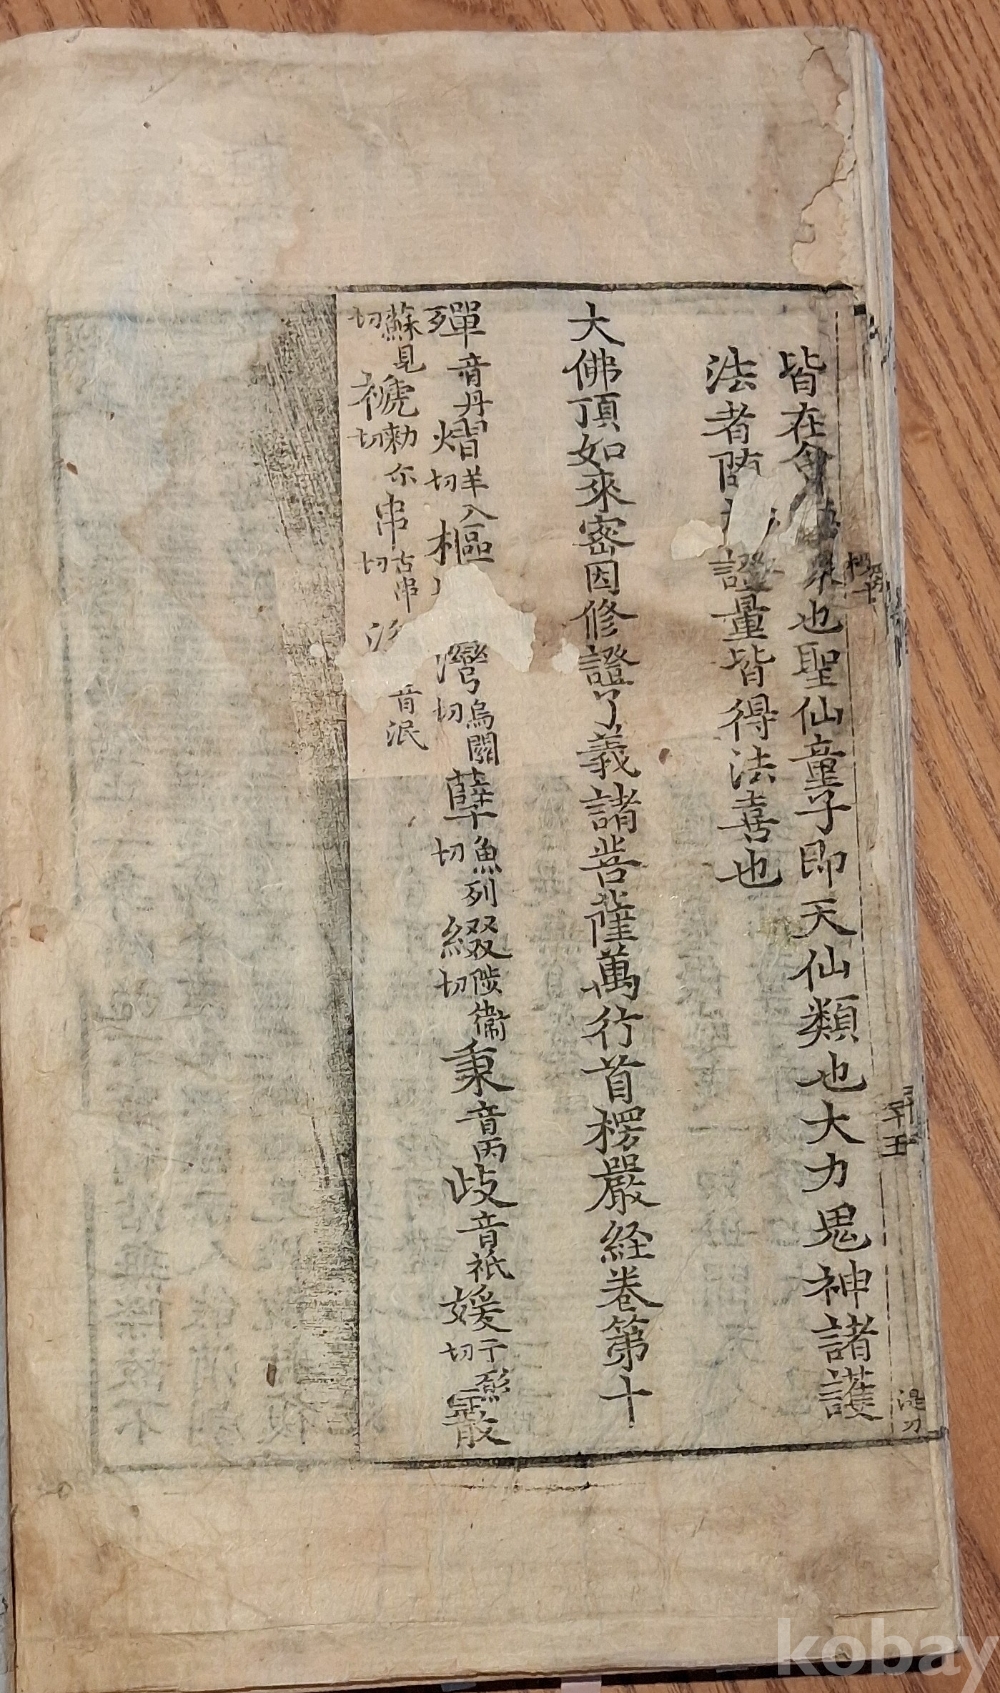 皆在會 也聖仙童子即天仙類也大力鬼神諸護
法者 證量皆得法喜也
大佛頂如來密因修證了義諸菩薩萬行首楞嚴経卷第十
殫音丹熠羊入切樞 灣烏關切孽魚列切綴陟衞切秉音丙歧音祇媛于 切霰
蘇見切褫勑尓切串古串切 音泯
kobay